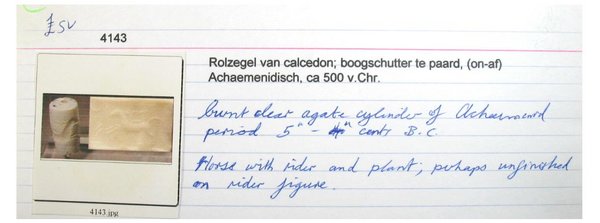 SV
4143
Rolzegel van calcedon; boogschutter te paard, (on-af)
Achaemenidisch, ca 500 v.Chr.
burnt clear agate cylinder of Achaemenid
period 5th - 4th cent B.C.
Horse with rider and plant; perhaps unfinished
on rider figure.
4143.jpg